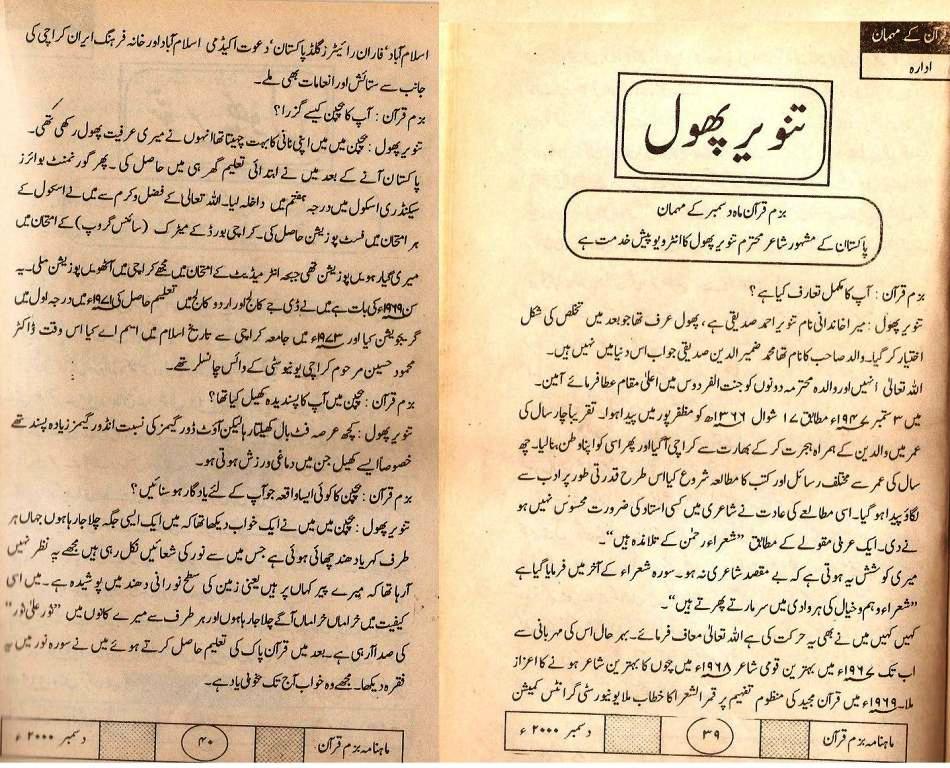 قرآن کے مہمان
ادارہ
تنویر پھول
بزم قرآن ماہ دسمبر کے مہمان
پاکستان کے مشہور شاعر محترم تنویر پھول کا انٹرویو پیش خدمت ہے
بزم قرآن : آپ کا مکمل تعارف کیا ہے؟
تنویر پھول : میرا خاندانی نام تنویر احمد صدیقی ہے ، پھول عرف تھا جو بعد میں تخلص کی شکل
اختیار کر گیا۔ والد صاحب کا نام تھا محمد ضمیر الدین صدیقی جو اب اس دنیا میں نہیں ہیں۔
اللہ تعالیٰ انہیں اور والدہ محترمہ دونوں کو جنت الفردوس میں اعلیٰ مقام عطا فرمائے آمین۔
میں ۳ ستمبر ۱۹۴۷ء مطابق ۱۷ شوال ۱۳۶۶ھ کو مظفر پور میں پیدا ہوا۔ تقریباً چار سال کی
عمر میں والدین کے ہمراہ ہجرت کر کے بھارت سے کراچی آگیا اور پھر اسی کو اپنا وطن بنا لیا۔ چھ
سال کی عمر سے مختلف رسائل اور کتب کا مطالعہ شروع کیا اس طرح قدرتی طور پر ادب سے
لگاؤ پیدا ہو گیا۔ اسی مطالعے کی عادت نے شاعری میں کسی استاد کی ضرورت محسوس نہیں ہو
نے دی۔ ایک عربی مقولے کے مطابق ”شعراء رحمٰن کے تلامذہ ہیں“۔
میری کوشش یہ ہوتی ہے کہ بے مقصد شاعری نہ ہو۔ سورہ شعراء کے آخر میں فرمایا گیا ہے
”شعراء وہم و خیال کی ہر وادی میں سر مارتے پھرتے ہیں“۔
کہیں کہیں میں نے بھی یہ حرکت کی ہے اللہ تعالیٰ معاف فرمائے۔ بہر حال اس کی مہربانی سے
اب تک ۱۹۶۷ء میں بہترین قومی شاعر ۱۹۶۸ء میں بچوں کا بہترین شاعر ہونے کا اعزاز
ملا۔ ۱۹۶۹ء میں قرآن مجید کی منظوم تفہیم پر قمر الشعرا کا خطاب ملا یونیورسٹی گرانٹس کمیشن
ماہنامہ بزم قرآن
۳۹
دسمبر ۲۰۰۰ء
اسلام آباد‘ فاران رائیٹرز گلڈ پاکستان‘ دعوت اکیڈمی اسلام آباد اور خانہ فرہنگ ایران کراچی کی
جانب سے ستائش اور انعامات بھی ملے۔
بزم قرآن : آپ کا بچپن کیسے گزرا؟
تنویر پھول : بچپن میں میں اپنی نانی کا بہت چہیتا تھا انہوں نے میری عرفیت پھول رکھی تھی۔
پاکستان آنے کے بعد میں نے ابتدائی تعلیم گھر ہی میں حاصل کی۔ پھر گورنمنٹ بوائز
سیکنڈری اسکول میں درجہ ہشتم میں داخلہ لیا۔ اللہ تعالیٰ کے فضل و کرم سے میں نے اسکول کے
ہر امتحان میں فسٹ پوزیشن حاصل کی۔ کراچی بورڈ کے میٹرک (سائنس گروپ) کے امتحان میں
میری گیارہویں پوزیشن تھی جبکہ انٹر میڈیٹ کے امتحان میں مجھے کراچی میں آٹھویں پوزیشن ملی۔ یہ
سن ۱۹۶۹ء کی بات ہے میں نے ڈی جے کالج اور اردو کالج میں تعلیم حاصل کی ۱۹۷۱ء میں درجہ اول میں
گریجویشن کیا اور ۱۹۷۳ء میں جامعہ کراچی سے تاریخ اسلام میں ایم اے کیا اس وقت ڈاکٹر
محمود حسین مرحوم کراچی یونیورسٹی کے وائس چانسلر تھے۔
بزم قرآن : بچپن میں آپ کا پسندیدہ کھیل کیا تھا؟
تنویر پھول : کچھ عرصہ فٹ بال کھیلتا رہا لیکن آؤٹ ڈور گیمز کی نسبت انڈور گیمز زیادہ پسند تھے
خصوصاً ایسے کھیل جن میں دماغی ورزش ہوتی ہو۔
بزم قرآن : بچپن کا کوئی ایسا واقعہ جو آپ کے لئے یادگار ہو سنائیں؟
تنویر پھول : بچپن میں میں نے ایک خواب دیکھا تھا کہ میں ایک ایسی جگہ چلا جا رہا ہوں جہاں ہر
طرف کہر یا دھند چھائی ہوئی ہے جس میں سے نور کی شعائیں نکل رہی ہیں مجھے یہ نظر نہیں
آرہا تھا کہ میرے پیر کہاں پر ہیں یعنی زمین کی سطح نورانی دھند میں پوشیدہ ہے۔ میں اسی
کیفیت میں خراماں خراماں آگے چلا جا رہا ہوں اور ہر طرف سے میرے کانوں میں ”نور علیٰ نور“
کی صدا آ رہی ہے۔ بعد میں قرآن پاک کی تعلیم حاصل کرتے ہوئے میں نے سورہ نور میں یہ
فقرہ دیکھا۔ مجھے وہ خواب آج تک بخوبی یاد ہے۔
ماہنامہ بزم قرآن
۴۰
دسمبر ۲۰۰۰ء